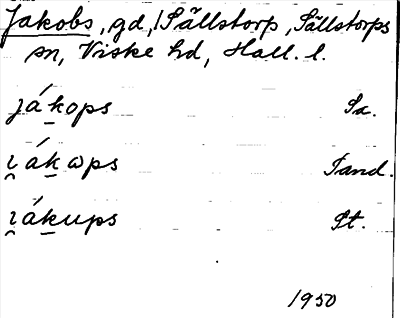 Jakobs, gd, i Sällstorp, Sällstorps
sn, Viske hd, Hall. l.
jákops Sa.
i̯ákɷps Tand.
i̯ákups St.
1950